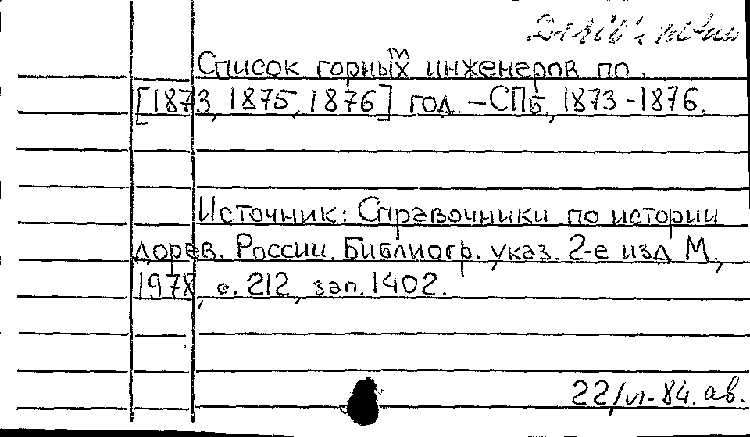 Список горным инженеров по
[1873, 1875, 1876] год. -СПб., 1873-1876.
Источник: Справочники по истории
дорев. России. Библиогр. указ. 2-е изд М.,
1978, с. 212, зап. 1402.
22/VI-84. ав.